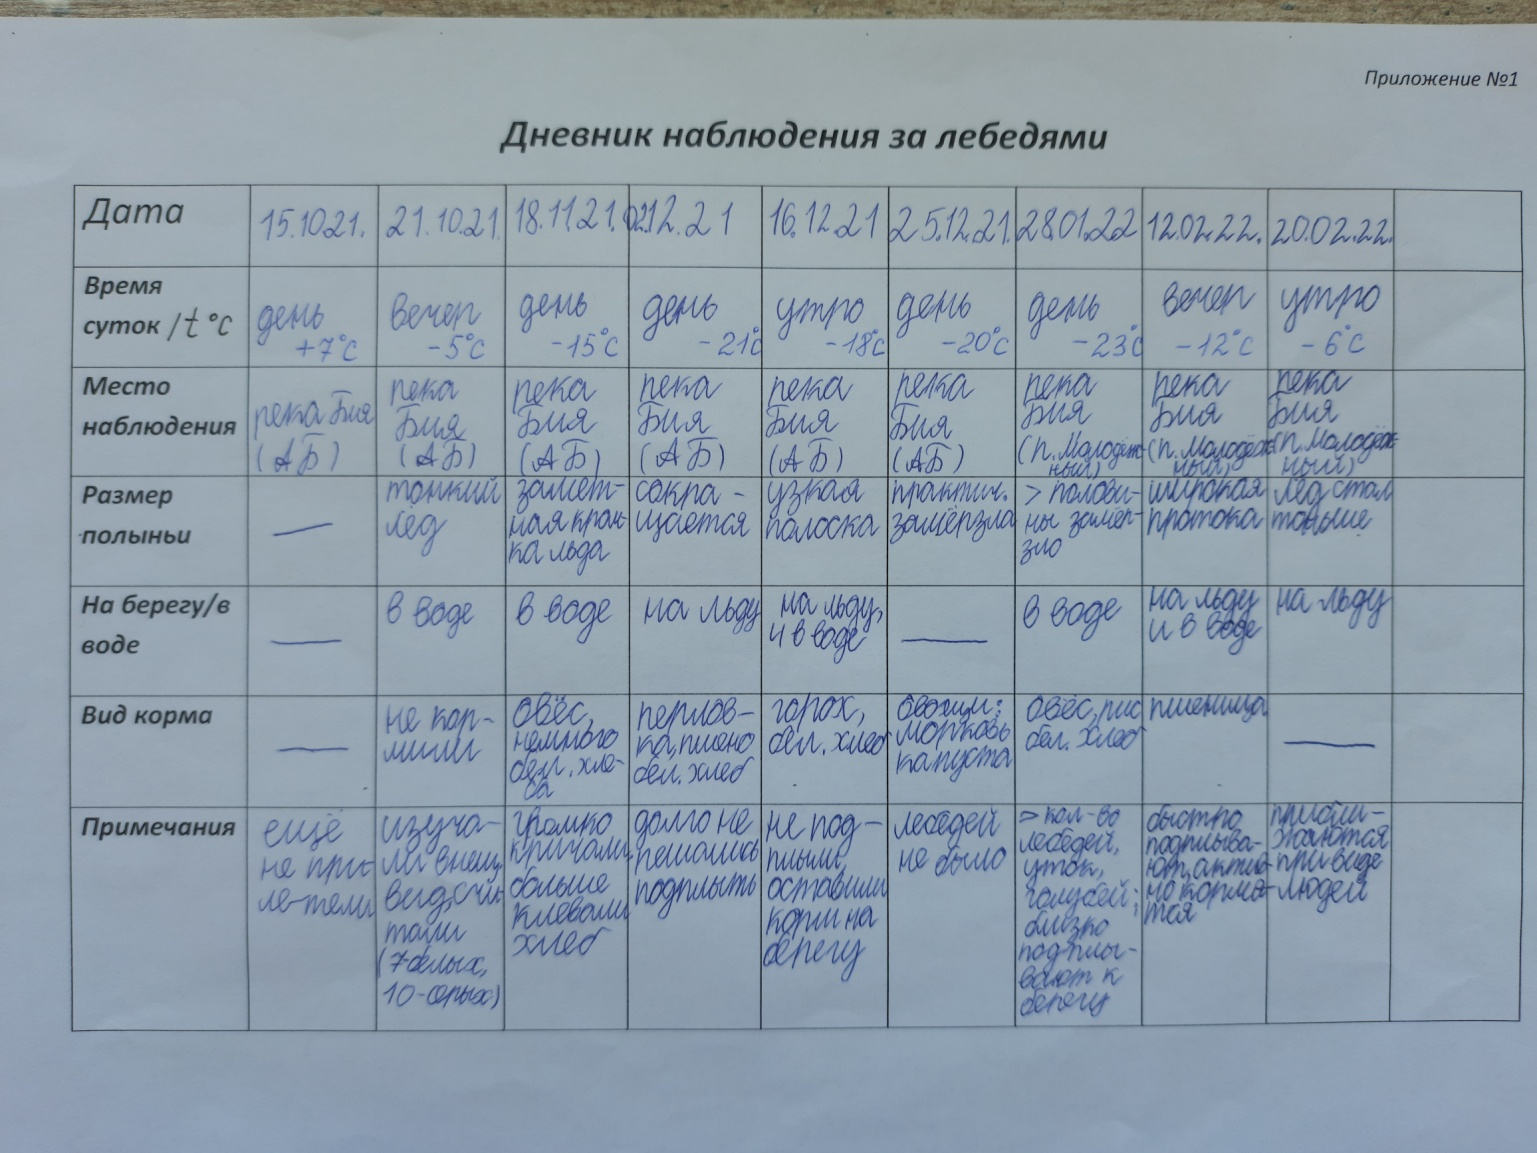 Приложение №1
Дневник наблюдения за лебедями
Дата 15.10.21. 21.10.21. 18.11.21. 02.12.21 16.12.21 25.12.21. 28.01.22 12.02.22. 20.02.22.
Время суток /t°C
день
+7°С
вечер
-5°С
день
-15°С
день
-21°С
утро
-18°С
день
-20°С
день
-23°С
вечер
-12°С
утро
-6°С
Место
наблюдения
река Бия
(АБ)
река
Бия
(АБ)
река
Бия
(АБ)
река
Бия
(АБ)
река
Бия
(АБ)
река
Бия
(АБ)
река
Бия
(п. Молодёж-
ный)
река
Бия
(п. Молодёж-
ный)
река
Бия
(п. Молодёж-
ный)
Размер
полыньи
—
тонкий
лёд
замет-
ная кром-
ка льда
сокра-
щается
узкая
полоска
практич.
замёрзла
> полови-
ны замёр-
зло
широкая
протока
лёд стал
тоньше
На берегу/в
воде
—
в воде
в воде
на льду
на льду,
и в воде
—
в воде
на льду
и в воде
на льду
Вид корма
—
не кор-
мили
овёс,
немного
бел. хле-
ба
перлов-
ка, пшено
бел. хлеб
горох,
бел. хлеб
овощи:
морковь
капуста
овёс, рис
бел. хлеб
пшеница
—
Примечания
ещё
не при-
ле-тели
изуча-
ли внеш.
вид, счи-
тали
(7 белых,
10-серых)
громко
кричали,
больше
клевали
хлеб
долго не
решались
подплыть
не под-
плыли,
оставили
корм на
берегу
лебедей
не было
> кол-во
лебедей,
уток,
голубей;
близко
подплы-
вают к
берегу
быстро
подплыва-
ют, актив-
но кормя-
тся
прибли-
жаются
при виде
людей